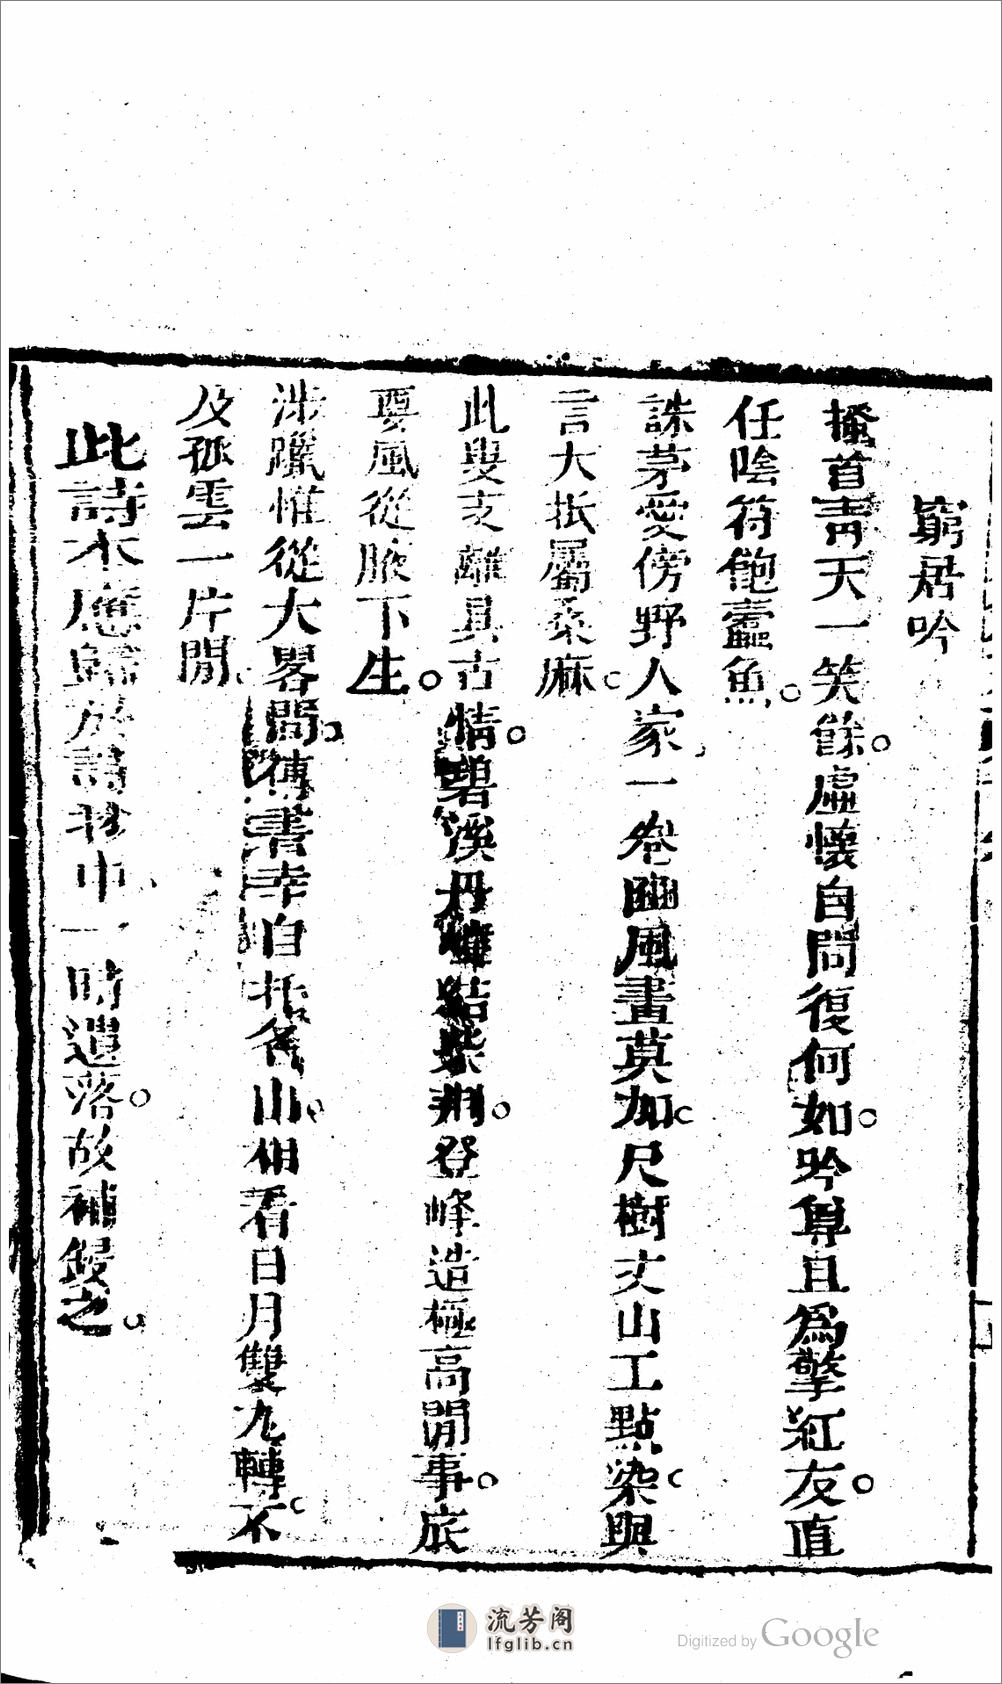 窮居吟
搔首青天一笑餘虛懷自問復何如吟尊且爲擎紅友直
任陰符飽蠹魚
誅茅愛傍野人家一卷豳風畫莫加尺樹丈山工點染與
言大抵屬桑麻
此叟支離具古情碧溪丹 結柴荆登峰造極高閒事底
要風從腋下生
涉躐惟從大畧間傳書幸自 名山相看日月雙丸轉不
及孤雲一片閒
此詩本應歸於詩抄中一時遺落故補鋟之
流芳阁
lfglib.cn
Digitized by Google